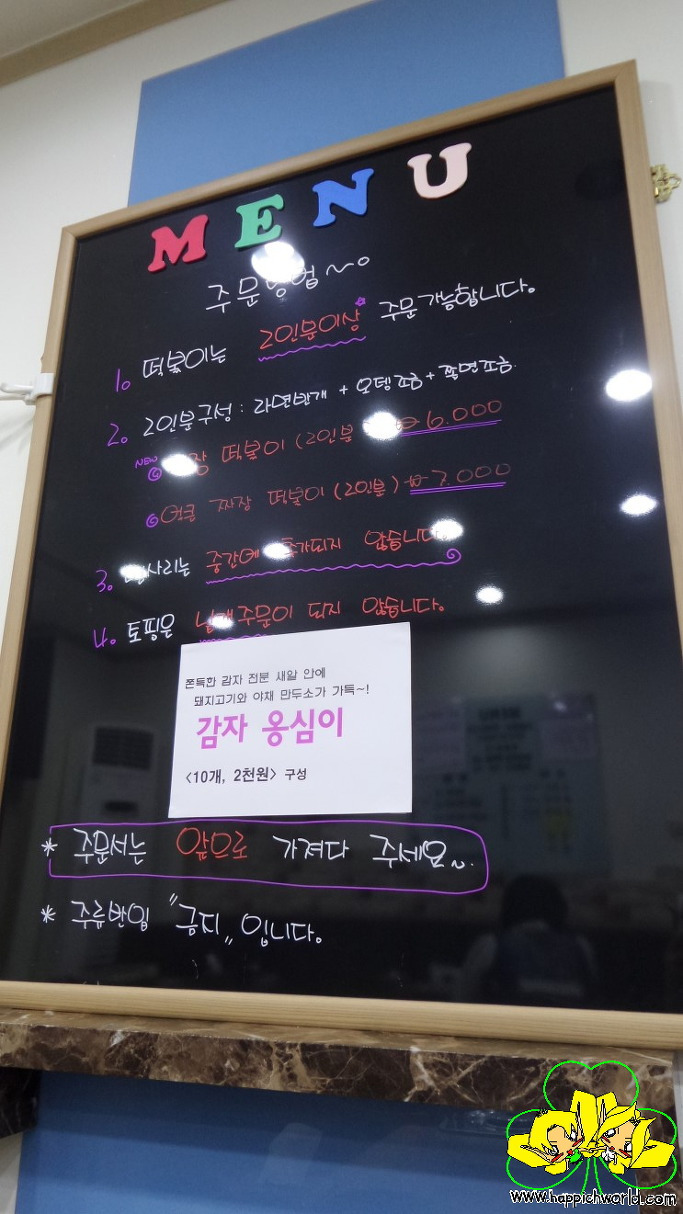 MENU
주문방법~
1. 떡볶이는 2인분이상 주문가능합니다.
2. 2인분구성 : 라면반개 + 오뎅조금 + 쫄면조금.
NEW 짜장 떡볶이 (2인분 ₩6.000
얼큰 짜장 떡볶이 (2인분) ₩7.000
3. 사리는 중간에 추가되지 않습니다.
4. 토핑은 낱개주문이 되지 않습니다.
쫀득한 감자 전분 새알 안에
돼지고기와 야채 만두소가 가득~!
감자 옹심이
<10개, 2천원> 구성
* 주문서는 앞으로 가져다 주세요~.
* 주류반입 "금지" 입니다.
www.happichworld.com